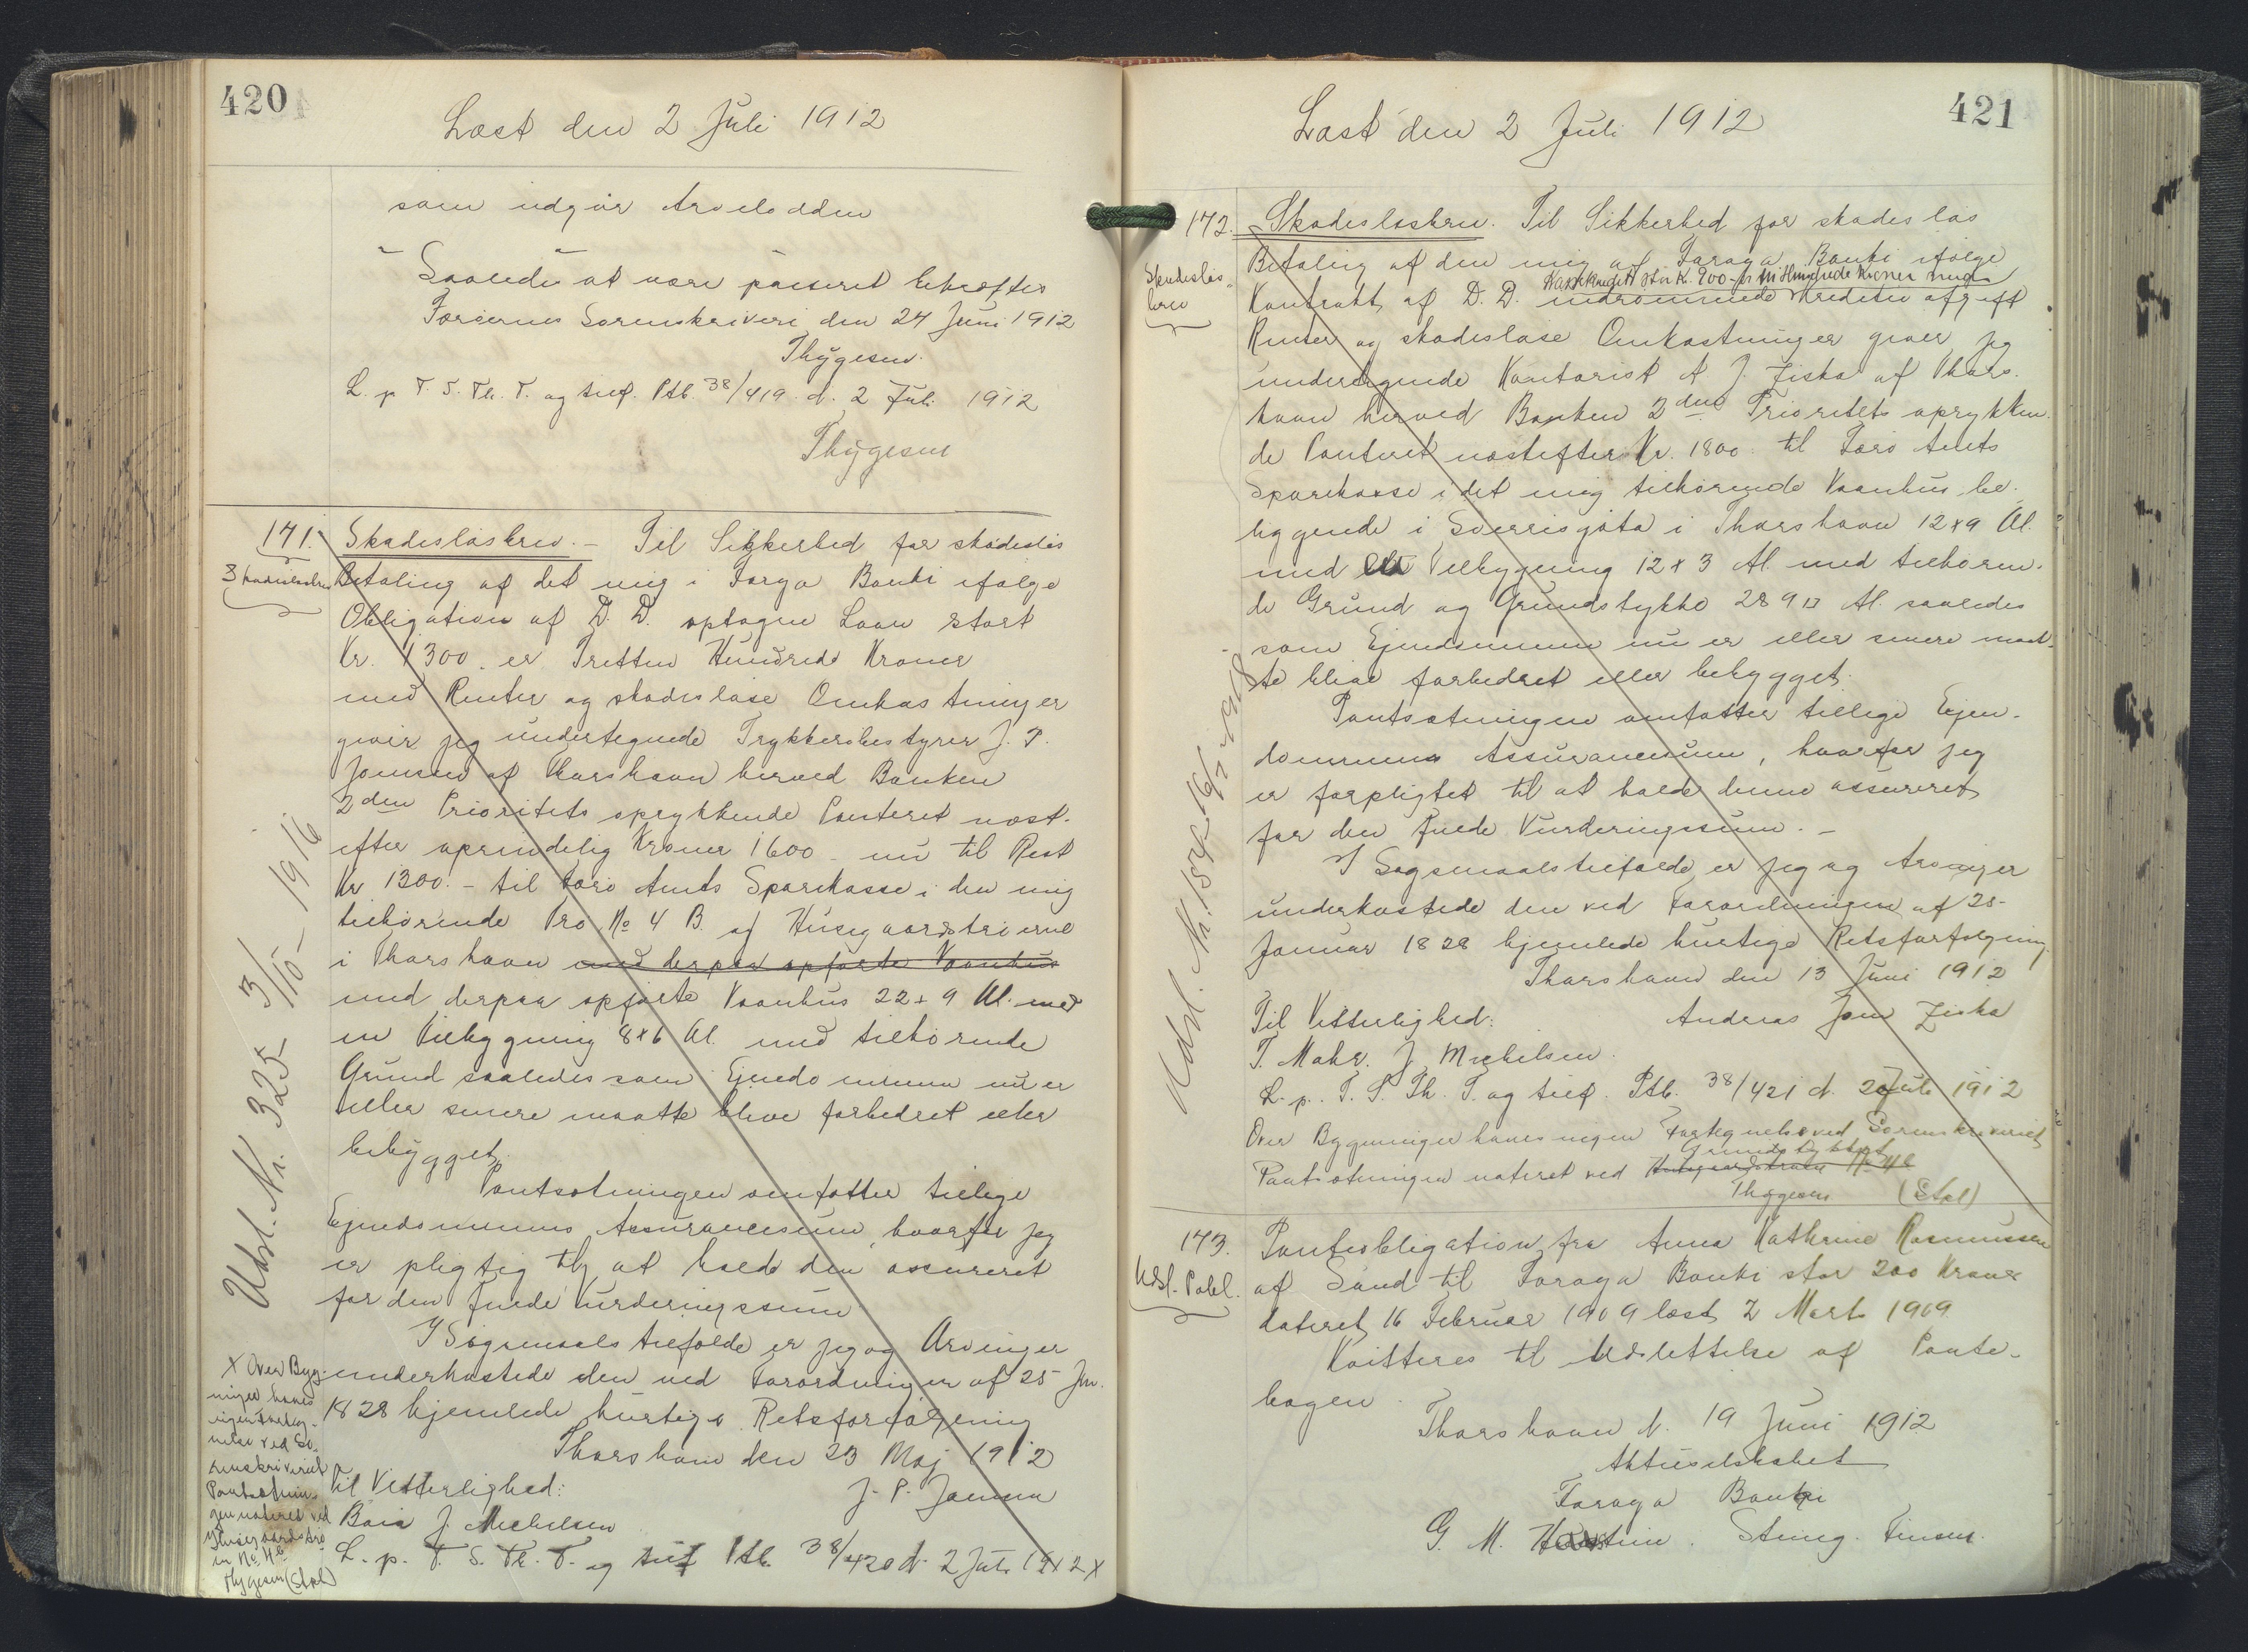 420
Læst den 2 Juli 1912
som udgør Arvelodden
Saaledes at være passeret bekræftes
Færøernes Sorenskriveri, den 24 Juni 1912
Thygesen.
L. p. T. S. Th. T. og tilf. Ptb. 38/419. d. 2 Juli 1912
Thygesen
171. Skadesløsbrev. - Til Sikkerhed for skadesløs
Skadesløsbrev
Betaling af det mig i Føroya Banki ifølge
Obligation af D. D. optagne Laan stort
Kr. 1300. er Tretten Hundrede Kroner
med Renter og skadesløse Omkostninger
giver jeg undertegnede Trykkeribestyrer J. P.
Joensen af Thorshavn herved Banken
2den Prioritets oprykkende Panteret næst-
efter oprindelig Kroner 1600 - nu til Rest
Kr 1300. - til Færø Amts Sparekasse i den mig
tilhørende Pro No 4 B. af Husegaardstrøerne
i Thorshavn med derpaa opførte Vaanhus
med derpaa opførte Vaanhus 22 x 9 Al. med
en Tilbygning 8 x 6 Al. med tilhørende
Grund saaledes som Ejendommen nu er
eller senere maatte blive forbedret eller
bebygget.
Pantsætningen omfatter tillige
Ejendommens Assurancesum, hvorfor jeg
er pligtig til at holde den assureret
for den fulde Vurderingssum
I Søgsmaalstilfælde er jeg og Arvinger
underkastede den ved Forordningen af 25 Jan.
1828 hjemlede hurtige Retsforfølgning
Thorshavn den 23 Maj 1912
Til Vitterlighed:
J. P. Joensen
J. Michelsen
L. p. T. S. Th. T. og tilf Ptb. 38/420 d. 2 Juli 1912 x
Udsl. Nr. 325 - 3/10 - 1916
x Over Byg-
ningen haves
ingen Forteg-
nelse ved So-
renskriveriet
Pantsætnin-
gen noteret ved
Husegaardstrø
en No 4B
Thygesen (Stpl)
421
Læst den 2 Juli 1912
172. Skadesløsbrev. Til Sikkerhed for skadesløs
Skadesløs-
brev
Betaling af den mig af Føroya Banki ifølge
Kassekredit stor Kr. 900 - er Ni Hundrede Kroner med
Kontrakt af D. D. indrømmede Kreditiv afgift
Renter og skadesløse Omkostninger giver jeg
undertegnede Kontorist A J. Ziska af Thors-
havn herved Banken 2den Prioritets oprykken-
de Panteret næstefter Kr. 1800. til Færø Amts
Sparekasse i det mig tilhørende Vaanhus be-
liggende i Sverrisgøta i Thorshavn 12 x 9 Al.
med Tilbygning 12 x 3 Al. med tilhøren-
de Grund og Grundstykke 289 □ Al. saaledes
som Ejendommen nu er eller senere maat-
te blive forbedret eller bebygget.
Pantsætningen omfatter tillige Ejen-
dommens Assurancesum, hvorfor jeg
er forpligtet til at holde denne assureret
for den fulde Vurderingssum. -
I Søgsmaalstilfælde er jeg og Arvinger
underkastede den ved Forordningen af 25-
Januar 1828 hjemlede hurtige Retsforfølgning.
Thorshavn den 13 Juni 1912
Til Vitterlighed: Andreas Joen Ziska
J. Michelsen.
L. p. T. S. Th. T. og tilf. Ptb. 38/421 d. 2 Juli 1912
Over Bygningen haves ingen Fortegnelse ved Sorenskriveriet
Grundstykket
Pantsætningen noteret ved Husegaardstrøen No 4B
Thygesen (Stpl)
173. Panteobligation fra Anna Kathrine Rasmussen
Udsl. Pobl.
af Sand til Føroya Banki stor 200 Kroner
dateret 16 Februar 1909 læst 2 Marts 1909
Kvitteres til Udslettelse af Pante-
bogen.
Thorshavn d. 19 Juni 1912
Aktieselskabet
Føroya Banki
G. M.